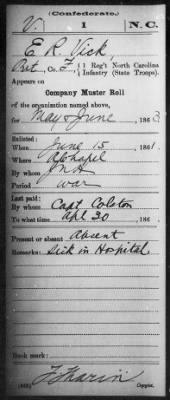 (Confederate.)
V. 1 N.C.
E R Vick
Pvt, Co. F, 1 Reg't North Carolina
Infantry (State Troops).
Appears on
Company Muster Roll
of the organization named above,
for May & June, 1863
Enlisted:
When June 15, 1861.
Where
By whom
Period war
Last paid:
By whom Capt Colston
To what time Apl 30, 186
Present or absent Absent
Remarks: Sick in Hospital
Book mark:
Copyist.